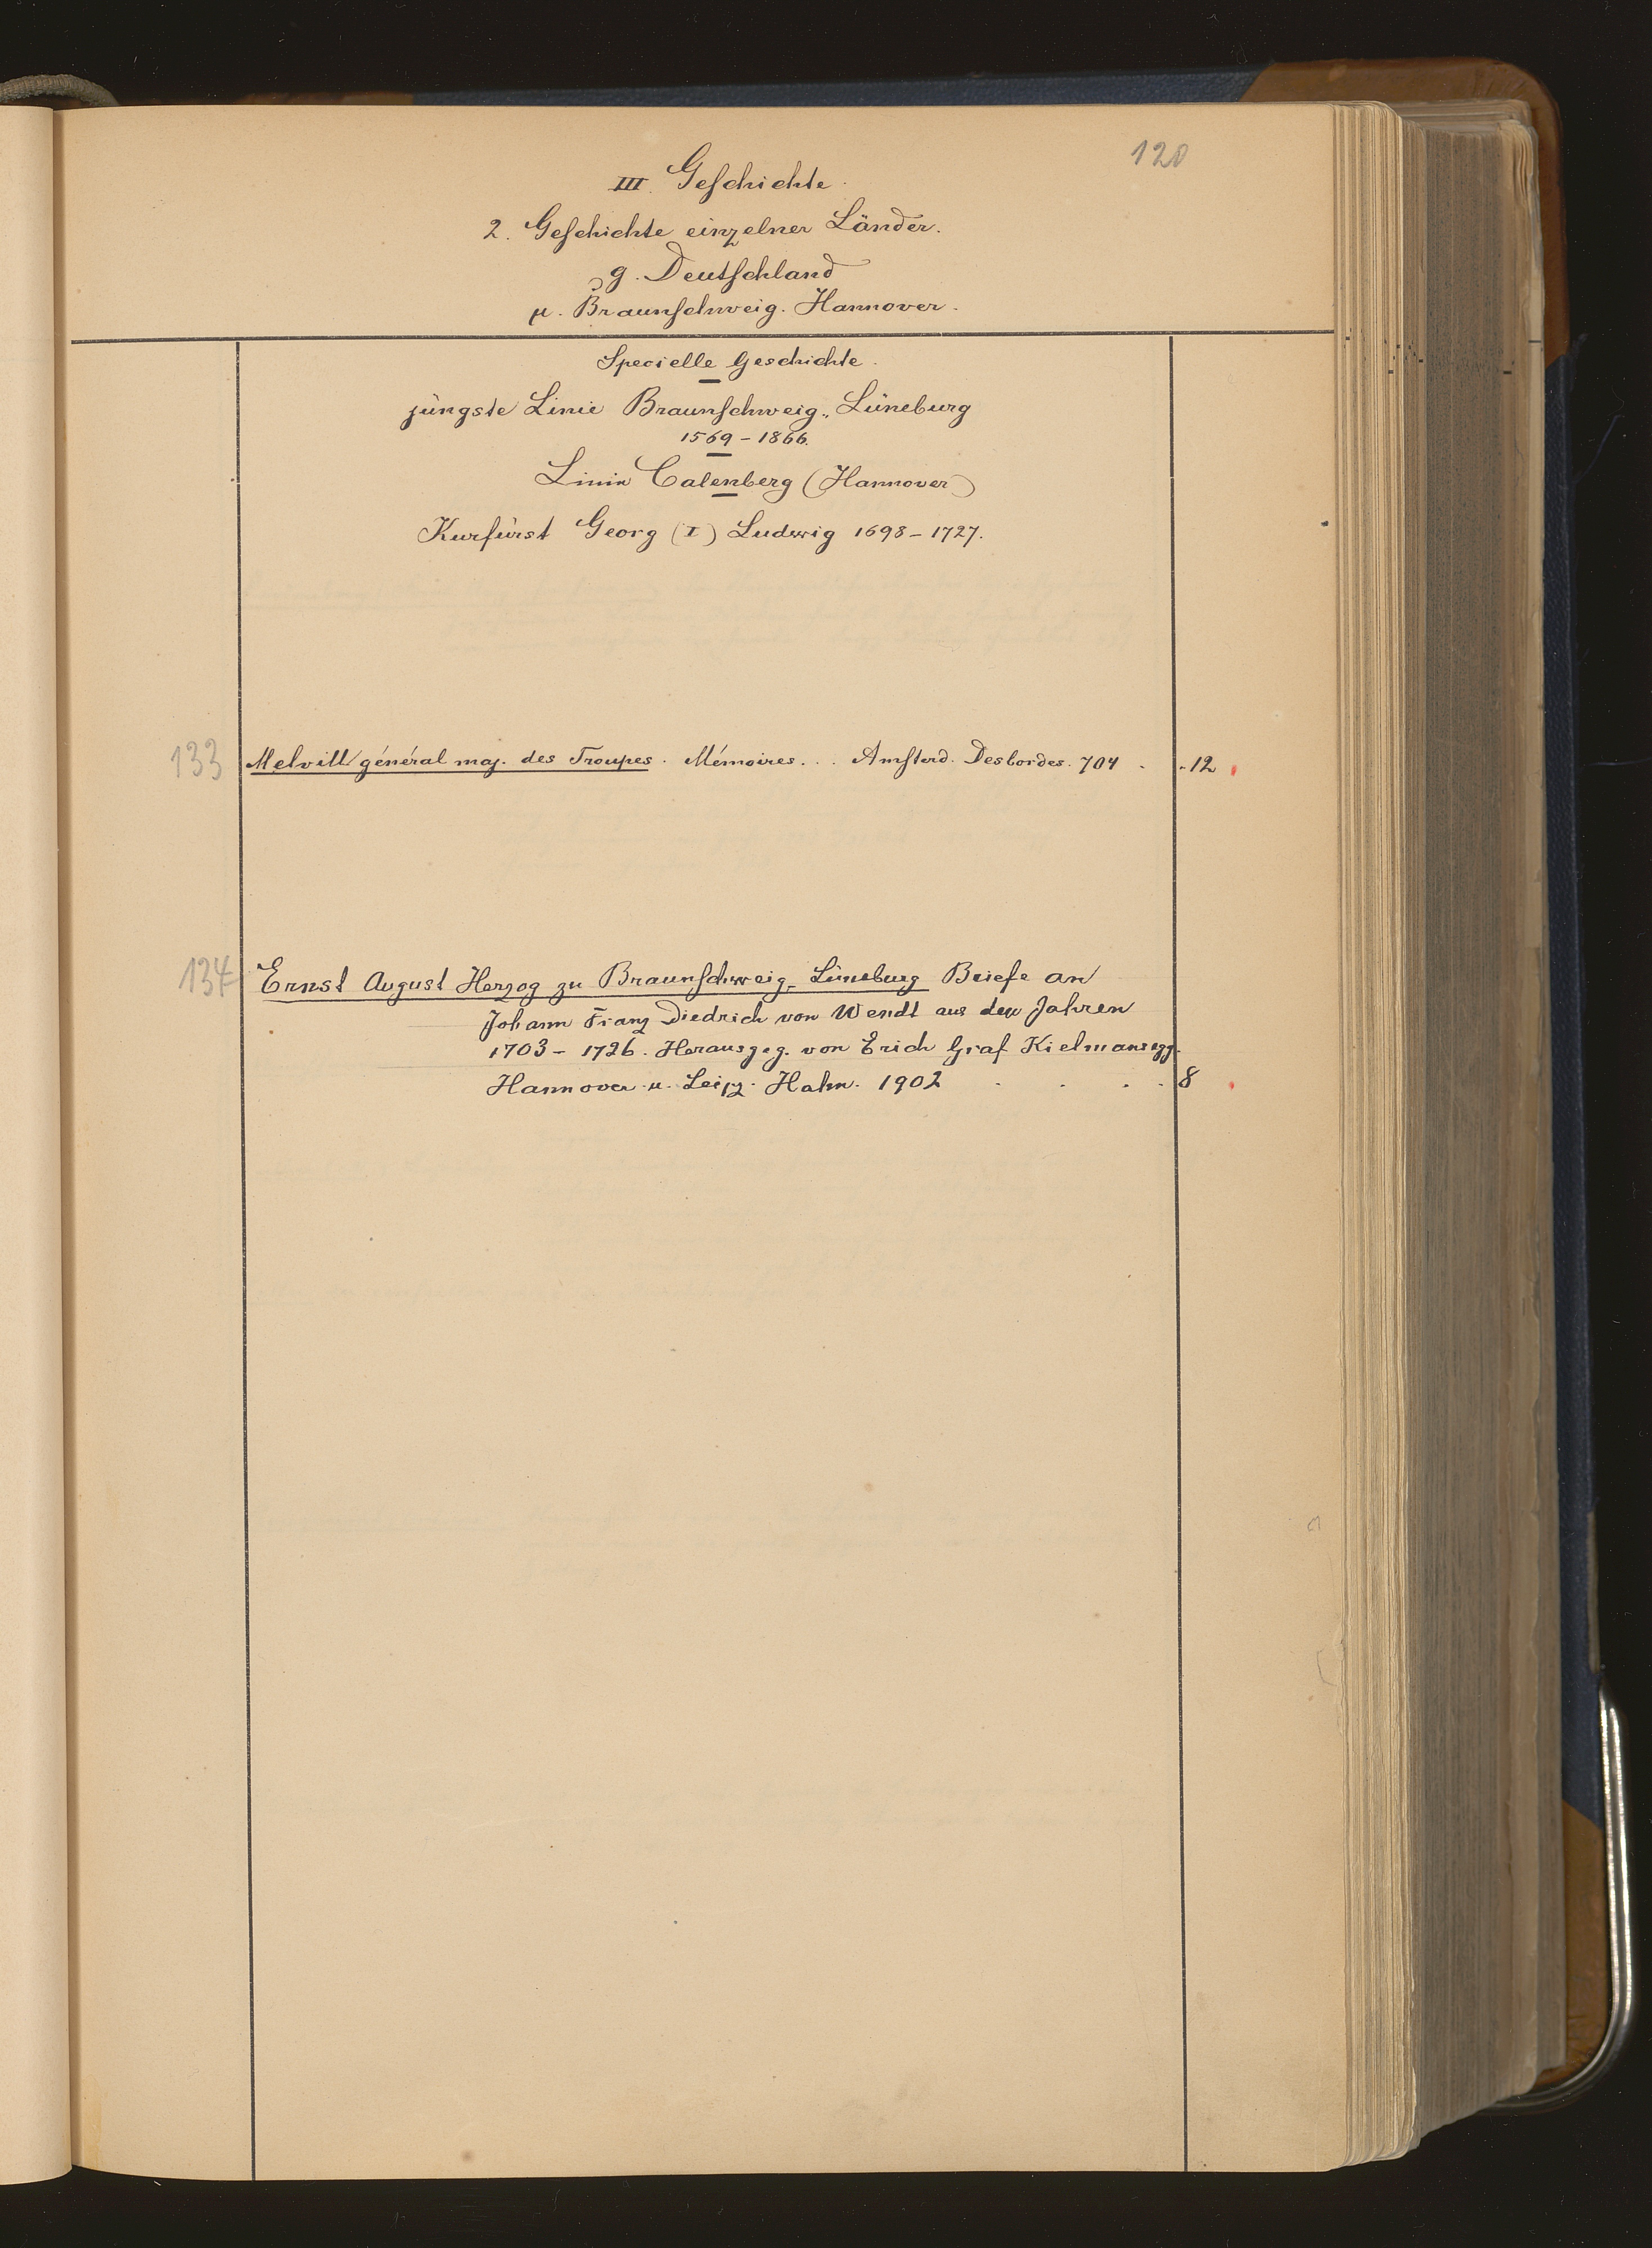 120
III. Geschichte.
2. Geschichte einzelner Länder.
g. Deutschland
μ. Braunschweig. Hannover.
Specielle Geschichte.
jüngste Linie Braunschweig-Lüneburg
1569-1866.
Linie Calenberg (Hannover)
Kurfürst Georg (I) Ludwig 1698-1727.
133 Melvill général maj. des Troupes. Mémoires... Amsterd. Desbordes. 704 . 12
134 Ernst August Herzog zu Braunschweig-Lüneburg Briefe an
Johann Franz Diedrich von Wendt aus den Jahren
1703-1726. Herausgeg. von Erich Graf Kielmansegg.
Hannover u. Leipz. Hahn. 1902 . . . . 8